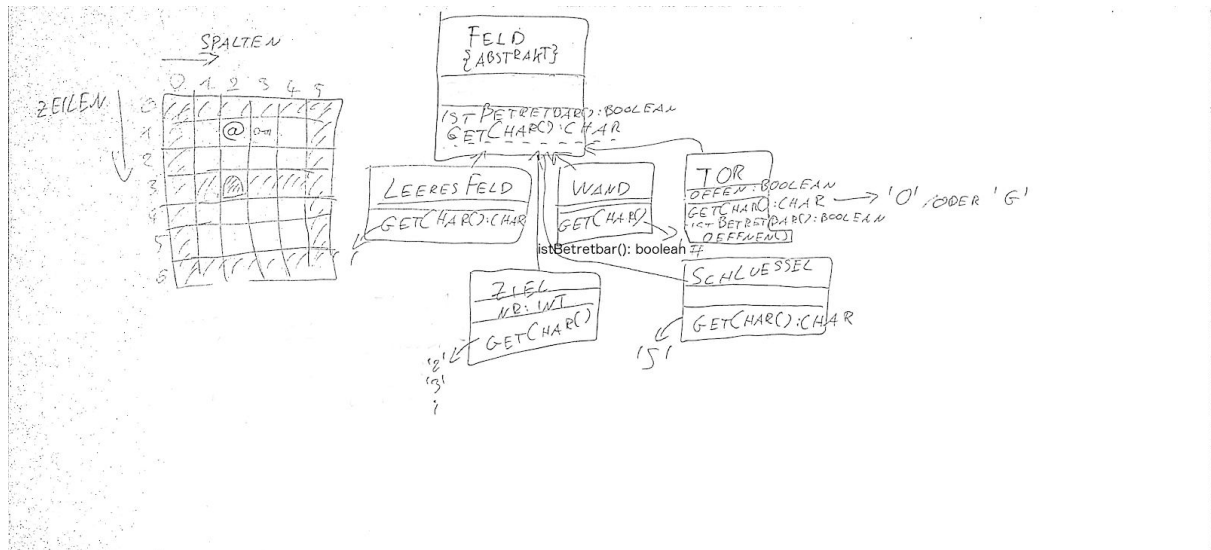 SPALTEN
ZEILEN
0 1 2 3 4 5
0
1
@
2
3
4
5
6
FELD
{ABSTRAKT}
ISTBETRETBAR():BOOLEAN
GETCHAR():CHAR
LEERESFELD
GETCHAR():CHAR
' '
WAND
GETCHAR()
istBetretbar(): boolean
'#'
TOR
OFFEN:BOOLEAN
GETCHAR():CHAR
ISTBETRETBAR():BOOLEAN
OEFFNEN()
'O' ODER 'G'
ZIEL
NR:INT
GETCHAR()
'2'
'3'
SCHLUESSEL
GETCHAR():CHAR